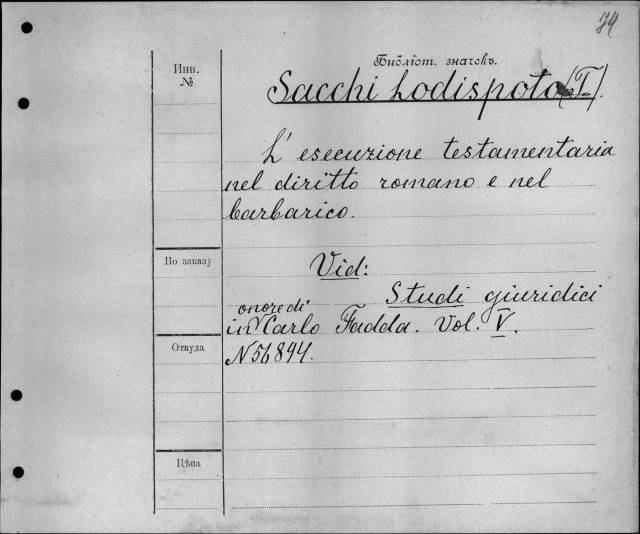 74
Библіот. значекъ.
Инв.
№
Sacchi Lodispoto (T.).
L' esecuzione testamentaria
nel diritto romano e nel
barbarico.
По заказу
Vid:
Studi giuridici
in onore di Carlo Fadda. Vol. V.
Откуда
N 56894.
Цѣна